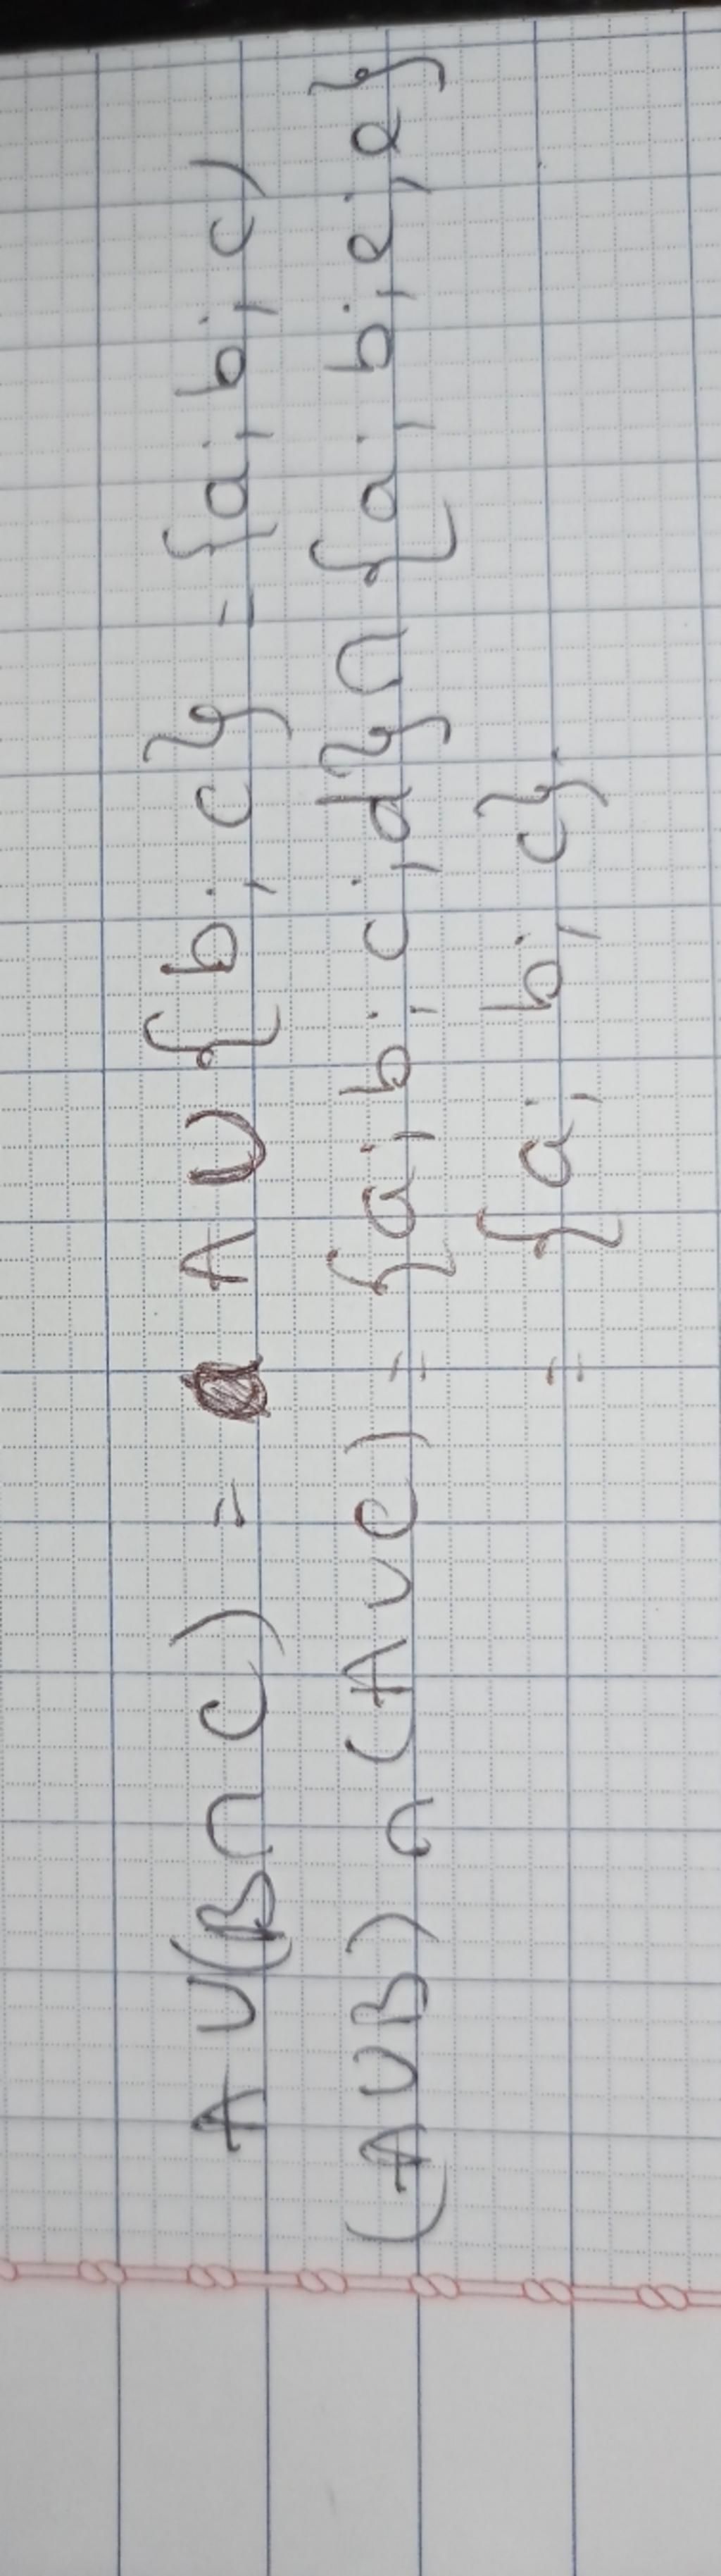 A ∪ (B ∩ C) = A ∪ {b ; c} = {a ; b ; c)
(A ∪ B) ∩ (A ∪ C) = {a ; b ; c ; d} ∩ {a ; b ; e ; e}
= {a ; b ; c}.